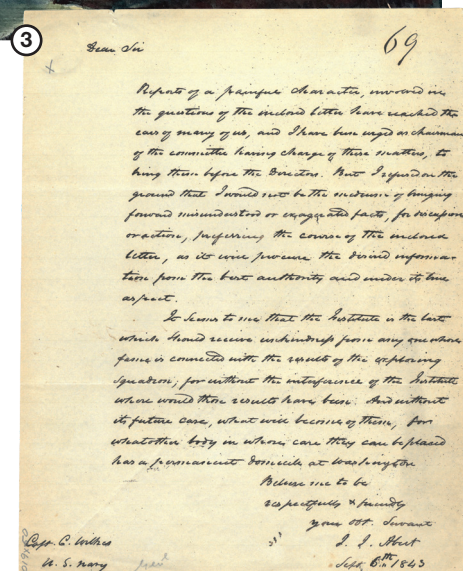 3
69
Dear Sir
Reports of a painful character, involved in
the questions of the inclosed letter have reached the
ears of many of us, and I have been urged as chairman
of the committee having charge of these matters, to
bring them before the Directors. But I refused on the
ground that I would not be the medium of bringing
forward misunderstood or exagerated facts, for discussion
or action, preferring the course of the inclosed
letter, as it will procure the desired informa-
tion from the best authority and under its true
aspect.
It seems to me that the Institute is the last
which should receive unkindness from any one whose
fame is connected with the results of the exploring
Squadron; for without the interference of the Institute
where would those results have been. And without
its future care, what will become of them, for
what other body in whose care they can be placed
has a permanent domicile at Washington
Believe me to be
respectfully & friendly
your obt. Servant
J. J. Abert
Sept. 6th 1843
Capt. C. Wilkes
U. S. Navy